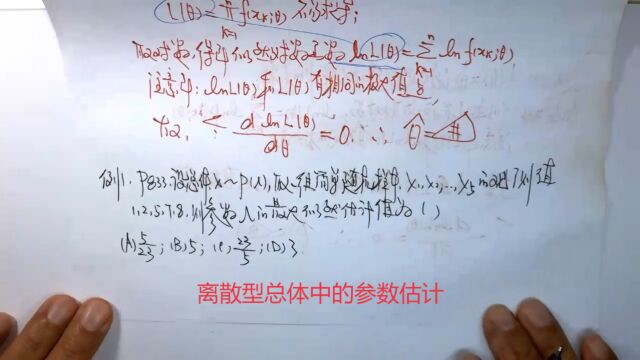 L(θ)=π f(xₖ;θ) 不好求导;
取对数,得到 似然对数函数 lnL(θ)=Σ ln f(xₖ;θ),
注意到: lnL(θ)和L(θ)有相同的极大值点,
d lnL(θ)/dθ = 0, ∴ θ̂
例1. P833.设总体X~P(λ),取一组简单随机样本 X₁,X₂,…,X₅ 的观测值
1,2,5,7,8,则参数λ的极大似然估计值为( )
(A) 5/23; (B) 5; (C) 23/5; (D) 3.
离散型总体中的参数估计